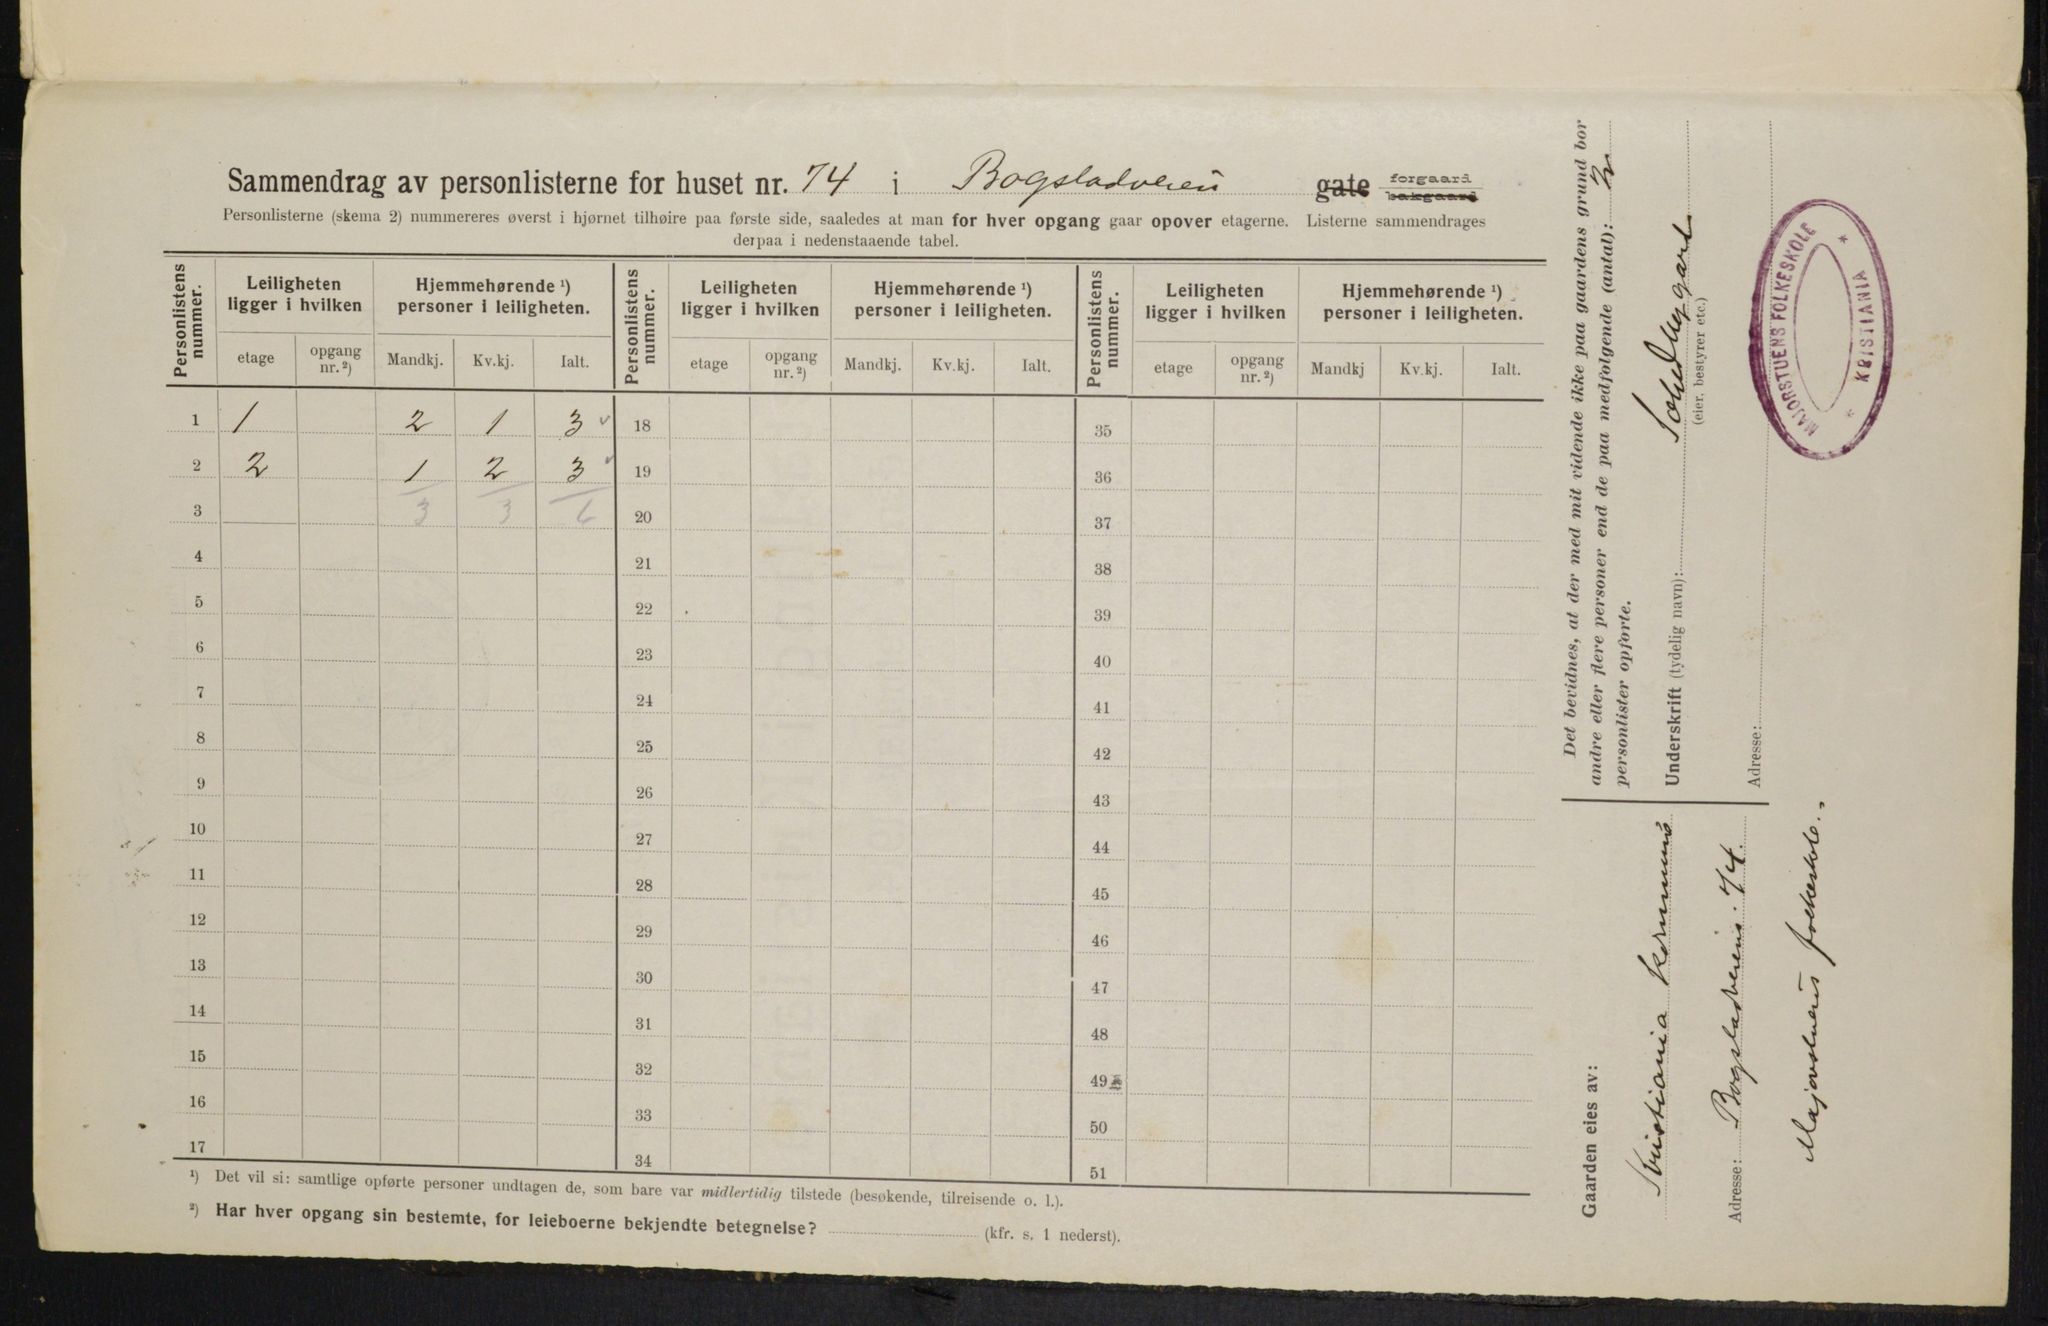 Sammendrag av personlisterne for huset nr. 74 i Bogstadveien gate forgaard bakgaard
Personlisterne (skema 2) nummereres øverst i hjørnet tilhøire paa første side, saaledes at man for hver opgang gaar opover etagerne. Listerne sammendrages
derpaa i nedenstaaende tabel.
Personlistens nummer. Leiligheten ligger i hvilken Hjemmehørende ¹) personer i leiligheten. Personlistens nummer. Leiligheten ligger i hvilken Hjemmehørende ¹) personer i leiligheten. Personlistens nummer. Leiligheten ligger i hvilken Hjemmehørende ¹) personer i leiligheten.
etage opgang nr. ²) Mandkj. Kv.kj. Ialt. etage opgang nr. ²) Mandkj. Kv.kj. Ialt. etage opgang nr. ²) Mandkj Kv.kj. Ialt.
1 1 2 1 3 18 35
2 2 1 2 3 19 36
3 3 3 6 20 37
4 21 38
5 22 39
6 23 40
7 24 41
8 25 42
9 26 43
10 27 44
11 28 45
12 29 46
13 30 47
14 31 48
15 32 49
16 33 50
17 34 51
¹) Det vil si: samtlige opførte personer undtagen de, som bare var midlertidig tilstede (besøkende, tilreisende o. l.).
²) Har hver opgang sin bestemte, for leieboerne bekjendte betegnelse? (kfr. s. 1 nederst).
Det bevidnes, at der med mit vidende ikke paa gaardens grund bor
andre eller flere personer end de paa medfolgende (antal): 2
personlister opforte.
Underskrift (tydelig navn):
(eier, bestyrer etc.)
Adresse:
Gaarden eies av:
Kristiania kommune
Adresse: Bogstadveien 74.
Majorstuens folkeskole.
MAJORSTUENS FOLKESKOLE
* KRISTIANIA *